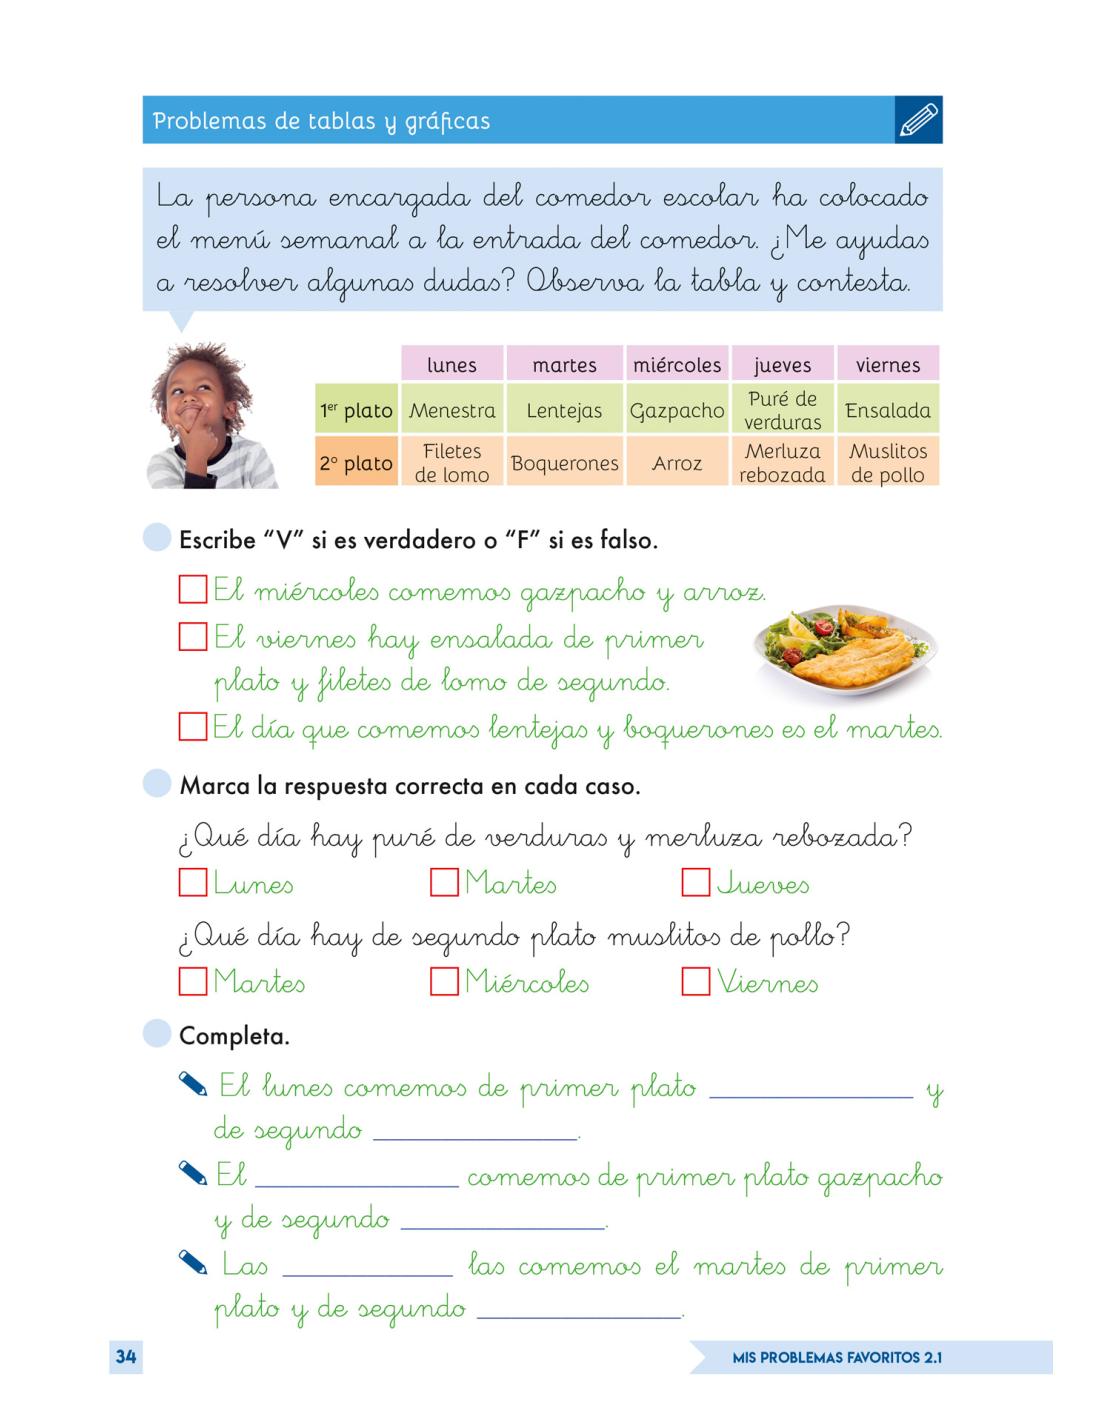 Problemas de tablas y gráficas
La persona encargada del comedor escolar ha colocado
el menú semanal a la entrada del comedor. ¿Me ayudas
a resolver algunas dudas? Observa la tabla y contesta.
lunes martes miércoles jueves viernes
1er plato Menestra Lentejas Gazpacho Puré de verduras Ensalada
2º plato Filetes de lomo Boquerones Arroz Merluza rebozada Muslitos de pollo
Escribe “V” si es verdadero o “F” si es falso.
El miércoles comemos gazpacho y arroz.
El viernes hay ensalada de primer
plato y filetes de lomo de segundo.
El día que comemos lentejas y boquerones es el martes.
Marca la respuesta correcta en cada caso.
¿Qué día hay puré de verduras y merluza rebozada?
Lunes Martes Jueves
¿Qué día hay de segundo plato muslitos de pollo?
Martes Miércoles Viernes
Completa.
El lunes comemos de primer plato ______ y
de segundo ______.
El ______ comemos de primer plato gazpacho
y de segundo ______.
Las ______ las comemos el martes de primer
plato y de segundo ______.
34 MIS PROBLEMAS FAVORITOS 2.1